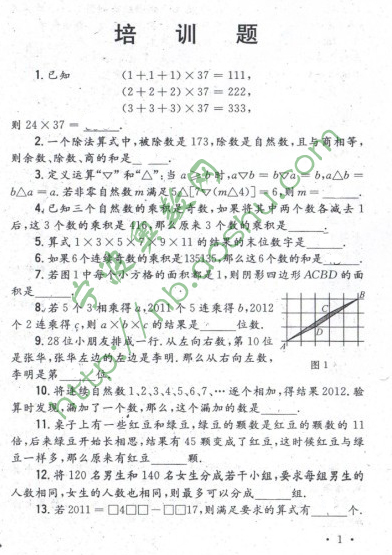 培 训 题
1. 已知 (1+1+1)×37=111,
(2+2+2)×37=222,
(3+3+3)×37=333,
则 24×37=____.
2. 一个除法算式中,被除数是 173,除数是自然数,且与商相等,
则余数、除数、商的和是____.
3. 定义运算“▽”和“△”:当 a≥b 时,a▽b=b▽a=b,a△b=
b△a=a. 若非零自然数 m 满足 5△[7▽(m△4)]=6,则 m=____.
4. 已知三个自然数的乘积是奇数,如果将其中两个数各减去 1
后,这 3 个数的乘积是 416,那么原来 3 个数的乘积是____.
5. 算式 1×3×5×7×9×11 的结果的末位数字是____.
6. 如果 6 个连续奇数的乘积是 135135,那么这 6 个数的和是____.
7. 若图 1 中每个小方格的面积都是 1,则阴影四边形 ACBD 的面
积是____.
8. 若 5 个 3 相乘得 a,2011 个 5 连乘得 b,2012
个 2 连乘得 c,则 a×b×c 的结果是____位数.
9. 28 位小朋友排成一行. 从左向右数,第 10 位
是张华,张华左边的左边是李明. 那么从右向左数,
李明是第____位.
A
B
C
D
图 1
10. 将连续自然数 1、2、3、4、5、6、7、… 逐个相加,得结果 2012. 验
算时发现,漏加了一个数,那么,这个漏加的数是____.
11. 桌子上有一些红豆和绿豆,绿豆的颗数是红豆的颗数的 11
倍,后来绿豆开始长相思,结果有 45 颗变成了红豆,这时候红豆与绿
豆一样多,那么原来有红豆____颗.
12. 将 120 名男生和 140 名女生分成若干小组,要求每组男生的
人数相同,女生的人数也相同,则最多可以分成____组.
13. 若 2011=□4□□-□□17,则满足要求的算式有____个.
· 1 ·